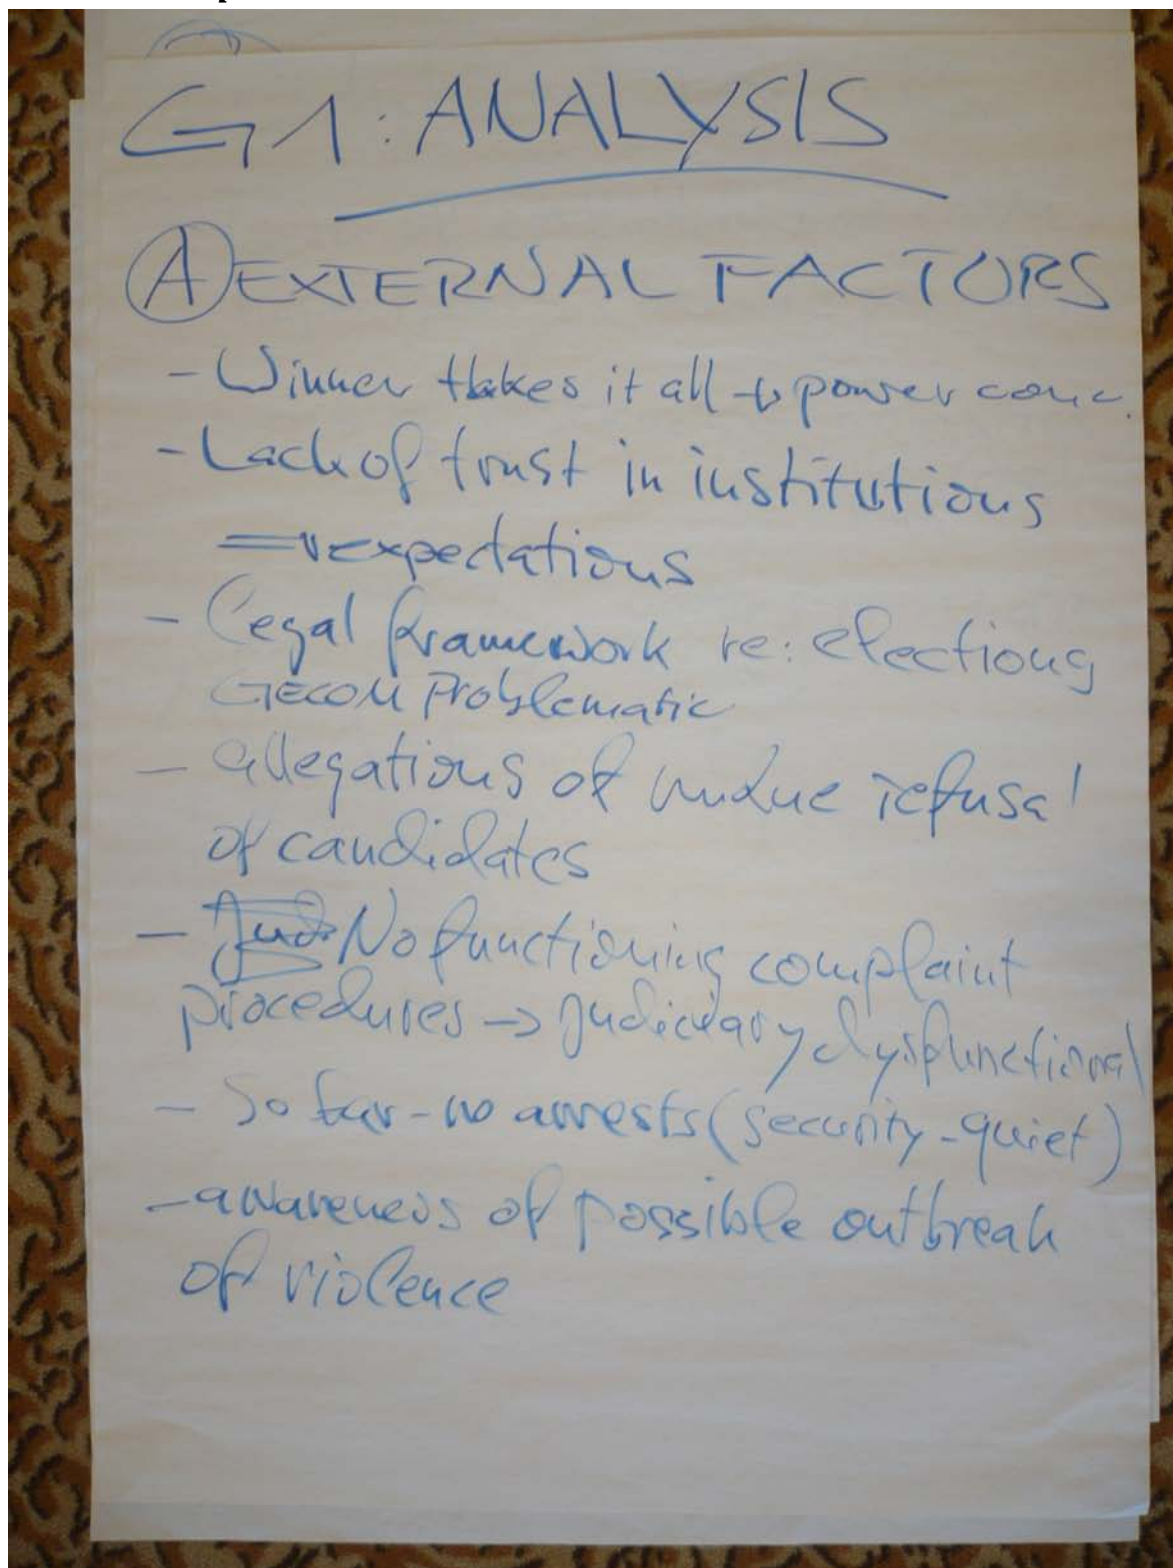 G1: ANALYSIS
(A) EXTERNAL FACTORS
- Winner takes it all → power conc.
- Lack of trust in institutions
⇒ expectations
- Legal framework re: elections
GECOM Problematic
- allegations of undue refusal
of candidates
- No functioning complaint
procedures → judiciary dysfunctional
- So far - no arrests (security - quiet)
- awareness of possible outbreak
of violence